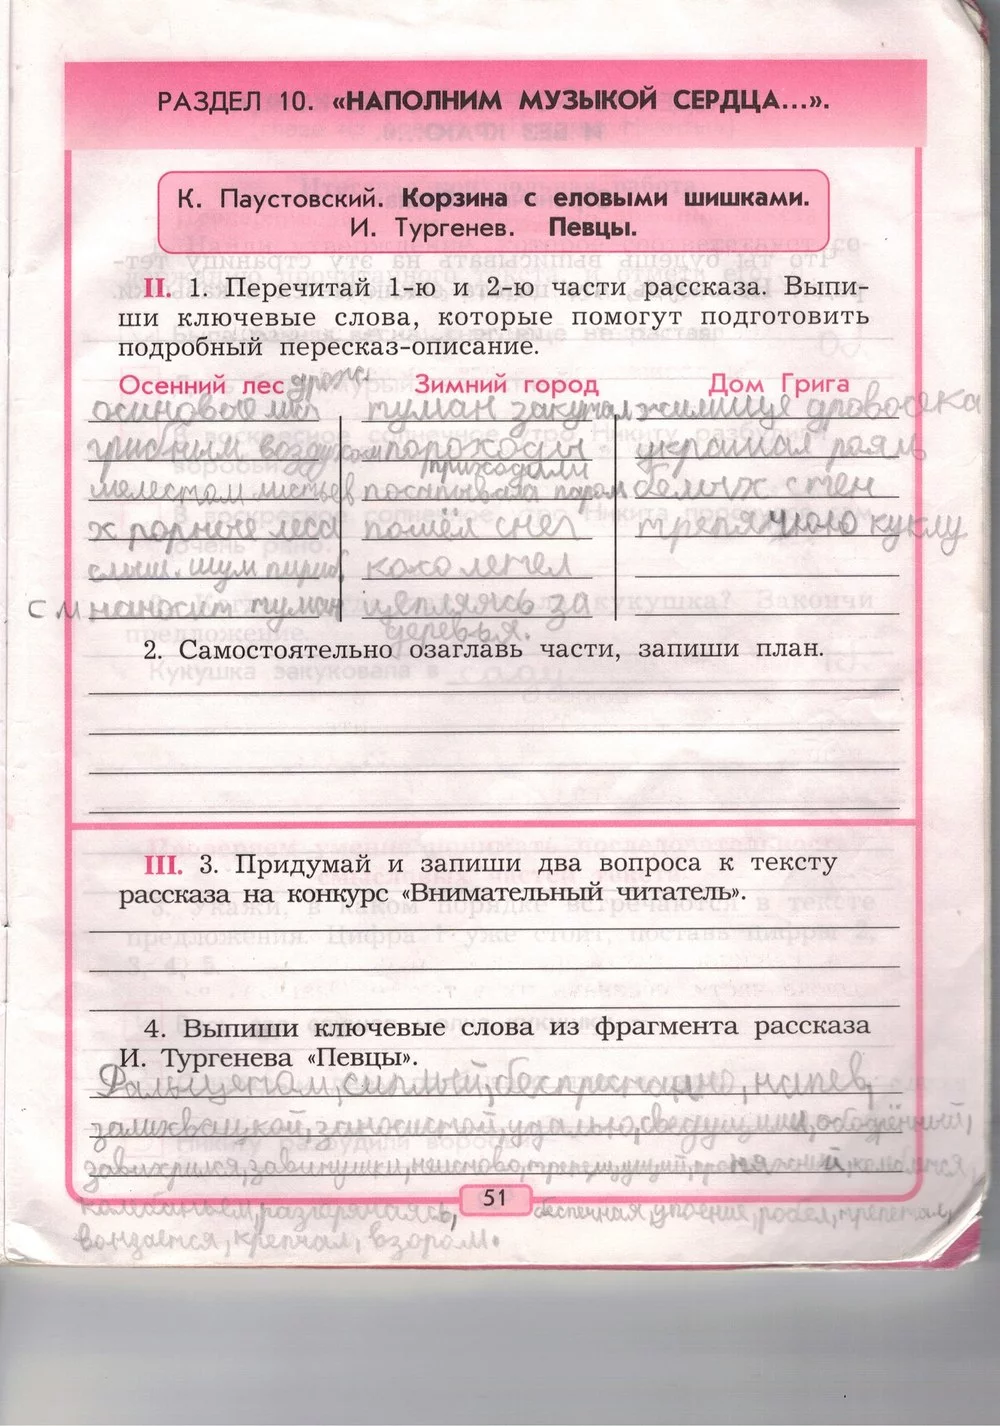 РАЗДЕЛ 10. «НАПОЛНИМ МУЗЫКОЙ СЕРДЦА...».
К. Паустовский. Корзина с еловыми шишками.
И. Тургенев. Певцы.
II. 1. Перечитай 1-ю и 2-ю части рассказа. Выпи-
ши ключевые слова, которые помогут подготовить
подробный пересказ-описание.
Осенний лес Зимний город Дом Грига
осиновые туман закутал жилище дровосека
грибным воздухом пороходы украшал рояль
приходили
шелестом листьев посапывала паром белых стен
леса пошёл снег тряпячную куклу
шум косо летел
наносит туман цепляясь за
деревья.
2. Самостоятельно озаглавь части, запиши план.
III. 3. Придумай и запиши два вопроса к тексту
рассказа на конкурс «Внимательный читатель».
4. Выпиши ключевые слова из фрагмента рассказа
И. Тургенева «Певцы».
Фальцетом, сиплый, беспрестанно, напев,
залихвацкой, заносистой, удалью, сведущими, ободрённый,
завихрился, завитушки, неистово,
51
колебаньем, разгорячаясь, беспечная, упоение, робел, трепетал,
крепчал, взором.